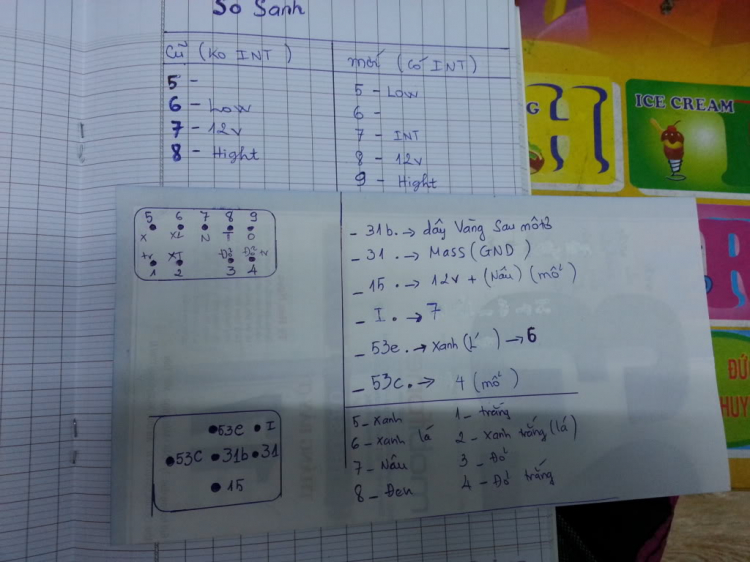 So Sanh
Cũ (Ko INT)
5 -
6 - Low
7 - 12v
8 - Hight
mới (Có INT)
5 - Low
6 -
7 - INT
8 - 12v
9 - Hight
5 6 7 8 9
X XL N T O
tr XT Đỏ Đỏ tr
1 2 3 4
- 31b. → dây Vàng Sau môtơ
- 31. → Mass (GND)
- 15. → 12v + (Nâu) (mô)
- I. → 7
- 53e. → Xanh (L) → 6
- 53c. → 4 (mô)
5 - Xanh
6 - Xanh lá
7 - Nâu
8 - Đen
1 - trắng
2 - Xanh trắng (lá)
3 - Đỏ
4 - Đỏ trắng
53e I
53c 31b 31
15
ICE CREAM
G
H
R
ĐỨ
HUY